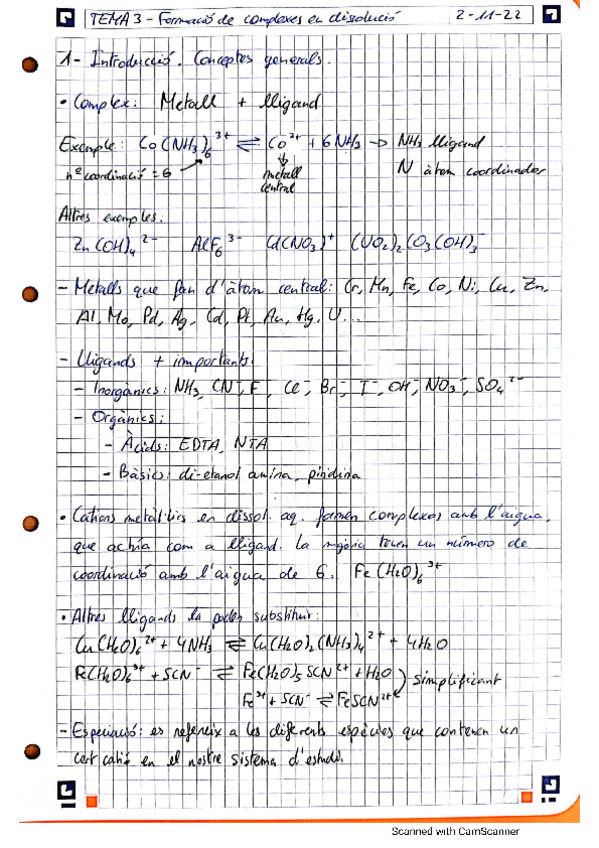 TEMA 3 - Formació de complexes en dissolució 2-11-22
1- Introducció. Conceptes generals.
• Complex: Metall + lligand
Exemple: Co(NH3)6 3+ ⇌ Co3+ + 6NH3 → NH3 lligand
nº coordinació = 6 metall central N àtom coordinador
Altres exemples:
Zn(OH)4 2- AlF6 3- Cd(NO3)+ (UO2)2CO3(OH)3-
- Metalls que fan d'àtom central: Cr, Mn, Fe, Co, Ni, Cu, Zn,
Al, Mo, Pd, Ag, Cd, Pt, Au, Hg, U...
- Lligands + importants:
- Inorgànics: NH3, CN-, F-, Cl-, Br-, I-, OH-, NO3-, SO4 2-
- Orgànics:
- Àcids: EDTA, NTA
- Bàsics: di-etanol amina, piridina
• Cations metàl·lics en dissol. aq. formen complexos amb l'aigua,
que actúa com a lligand. La majoria tenen un número de
coordinació amb l'aigua de 6. Fe(H2O)6 3+
• Altres lligands la poden substituir:
Cu(H2O)6 2+ + 4NH3 ⇌ Cu(H2O)2(NH3)4 2+ + 4H2O
Fe(H2O)6 3+ + SCN- ⇌ Fe(H2O)5SCN2+ + H2O
simplificant
Fe3+ + SCN- ⇌ FeSCN2+
- Especiació: es refereix a les diferents espècies que contenen un
cert catió en el nostre sistema d'estudi.
Scanned with CamScanner